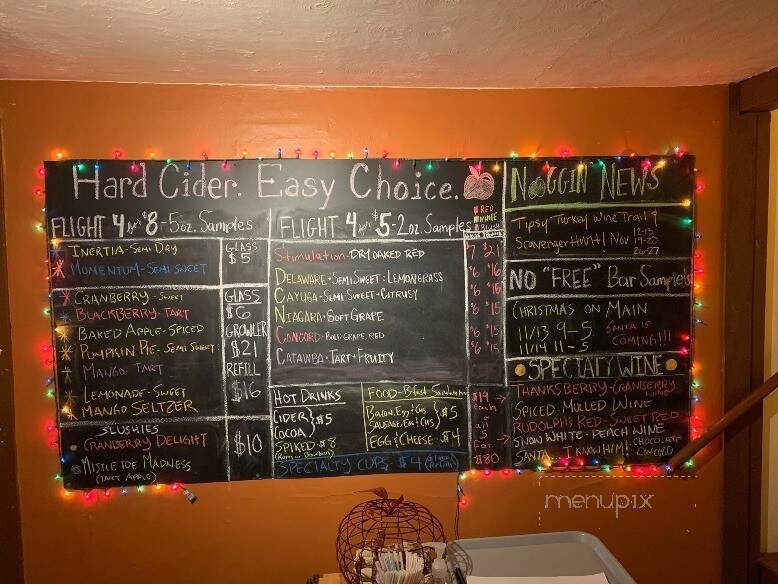 Hard Cider. Easy Choice.
FLIGHT 4 for $8 - 5oz. Samples
INERTIA - SEMI DRY
MOMENTUM - SEMI SWEET
GLASS
$5
CRANBERRY - SWEET
BLACKBERRY - TART
BAKED APPLE - SPICED
PUMPKIN PIE - SEMI SWEET
MANGO - TART
LEMONADE - SWEET
MANGO SELTZER
GLASS
$6
GROWLER
$21
REFILL
$16
SLUSHIES
CRANBERRY DELIGHT
MISTLETOE MADNESS
(TART APPLE)
$10
FLIGHT 4 for $5 - 2oz. Samples
RED
WHITE
BLUSH
Stimulation - DRY OAKED RED
$7 $21
DELAWARE - SEMI SWEET : LEMONGRASS
$6 $16
CAYUGA - SEMI SWEET - CITRUSY
$6 $15
NIAGARA - SOFT GRAPE
$6 $15
CONCORD - BOLD GRAPE, RED
$6 $15
CATAWBA - TART + FRUITY
$6 $15
HOT DRINKS
CIDER
COCOA
$5
SPIKED - $8
(Rum or Bourbon)
FOOD - Bfast Sandwiches
BACON, EGG & CHS
SAUSAGE, EGG & CHS
$5
EGG & CHEESE - $4
SPECIALTY CUPS - $4
NOGGIN NEWS
Tipsy Turkey Wine Trail &
Scavenger Hunt! Nov
12-13
19-20
26-27
NO "FREE" Bar Samples
CHRISTMAS ON MAIN
11/13 9-5
11/14 11-5
SANTA IS
COMING!!!
SPECIALTY WINE
$19
each
or
all
5
for
$80
THANKSBERRY - CRANBERRY
WINE
SPICED - MULLED WINE
RUDOLPH'S RED - SWEET RED
SNOW WHITE - PEACH WINE
SANTA... I KNOW HIM! - CHOCOLATE
CONCORD
menupix